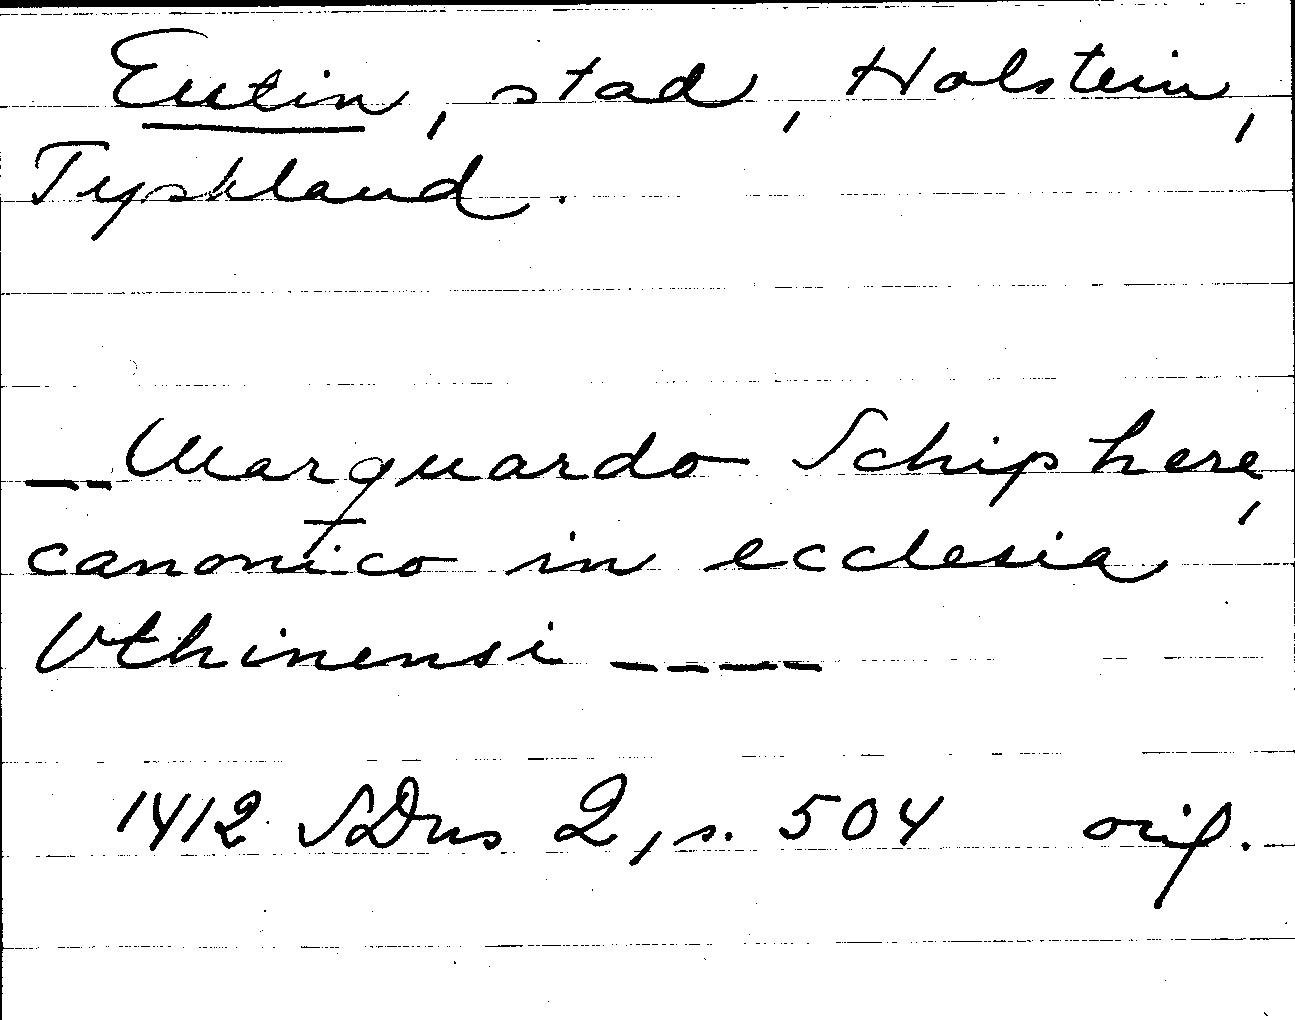 Eutin, stad, Holstein,
Tyskland.
-- Marquardo Schiphere,
canonico in ecclesia
Uthinensi ----
1412 SDns 2, s. 504 orig.